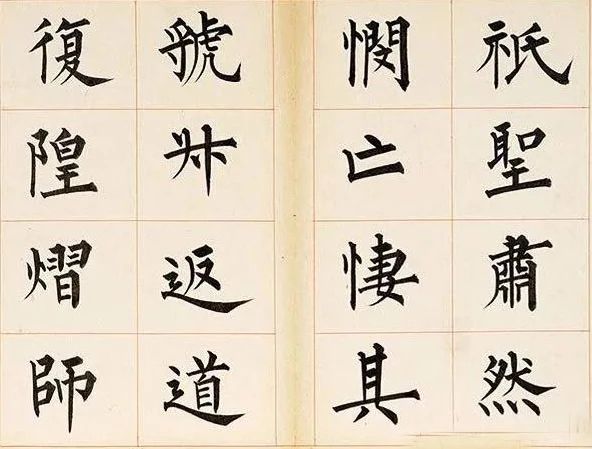 祇聖肅然
憫亡悽其
虢返道
復隍熠師